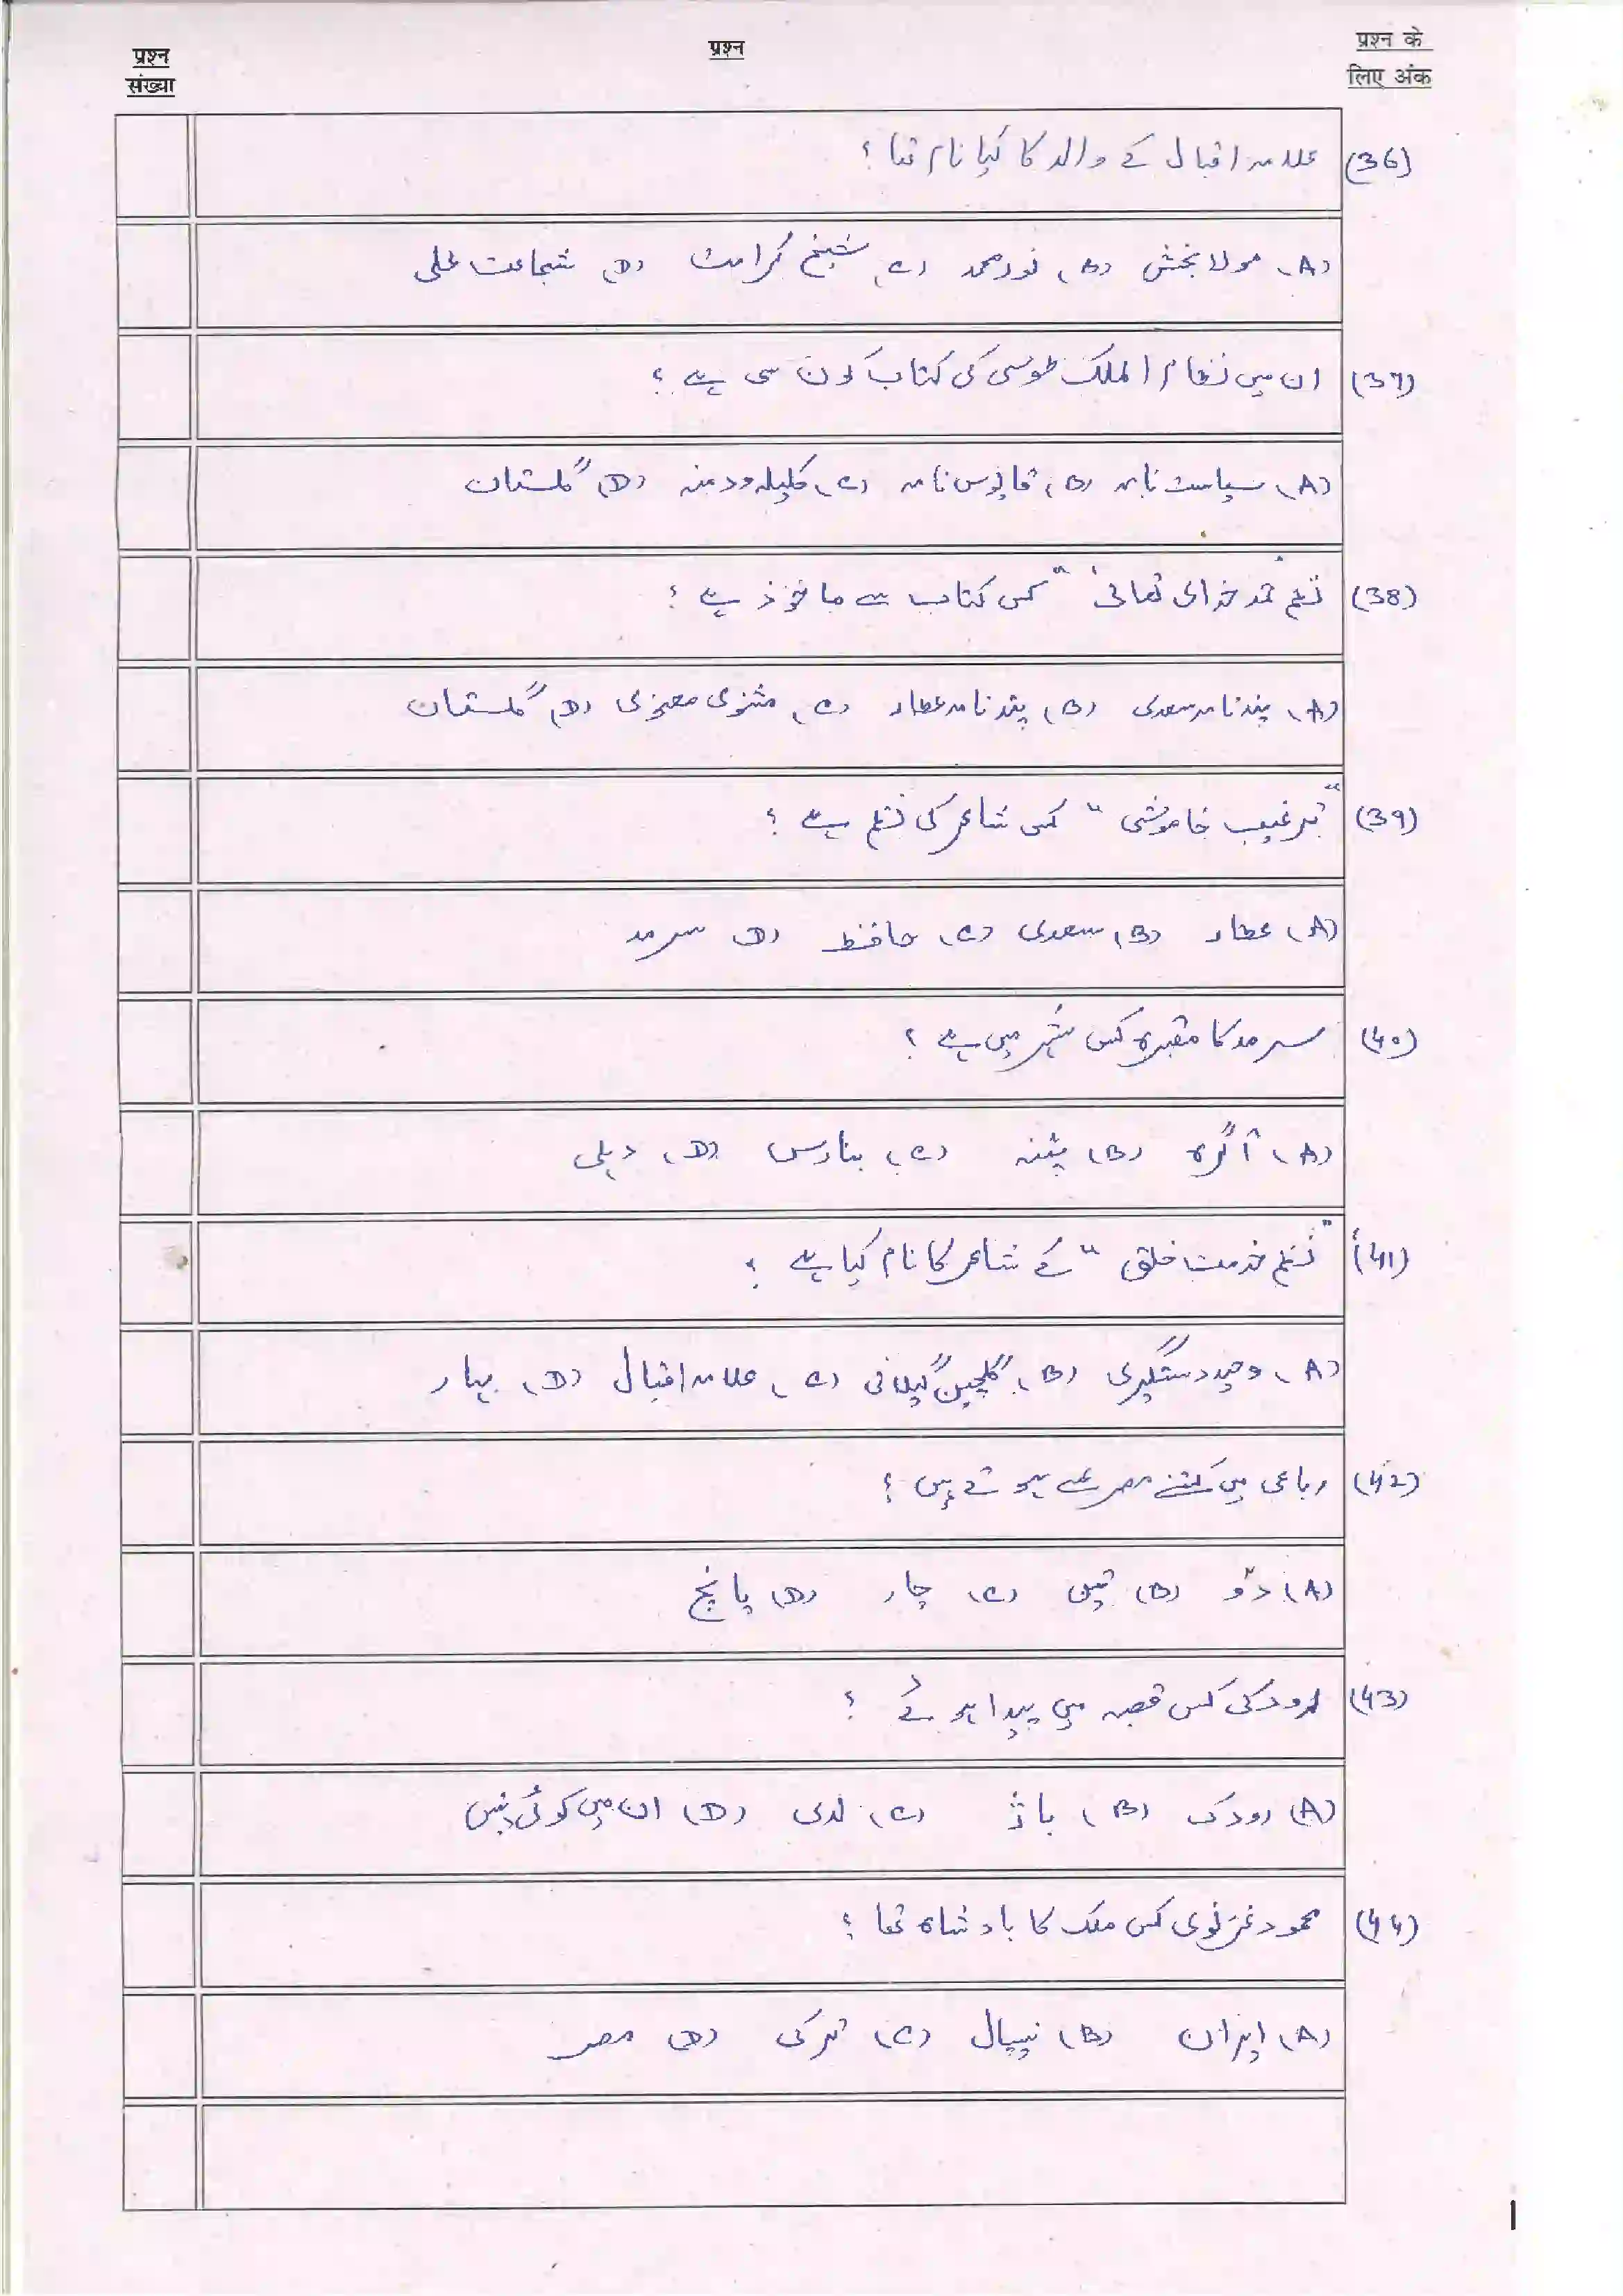 प्रश्न संख्या
प्रश्न
प्रश्न के लिए अंक
(36) علامہ اقبال کے والد کا کیا نام تھا ؟
(A) مولا بخش (B) نور محمد (C) شیخ کرامت (D) شجاعت علی
(37) ان میں نظام الملک طوسی کی کتاب کون سی ہے ؟
(A) سیاست نامہ (B) قابوس نامہ (C) کلیلہ و دمنہ (D) گلستان
(38) نظم "حمد خدای تعالیٰ" کس کتاب سے ماخوذ ہے ؟
(A) پندنامہ سعدی (B) پندنامہ عطار (C) مثنوی معنوی (D) گلستان
(39) "ترغیب خاموشی" کس شاعر کی نظم ہے ؟
(A) عطار (B) سعدی (C) حافظ (D) سرمد
(40) سرمد کا مقبرہ کس شہر میں ہے ؟
(A) آگرہ (B) پٹنہ (C) بنارس (D) دہلی
(41) "نظم خدمت خلق" کے شاعر کا نام کیا ہے ؟
(A) وحید دستگیری (B) گلچین گیلانی (C) علامہ اقبال (D) بہار
(42) رباعی میں کتنے مصرعے ہوتے ہیں ؟
(A) دو (B) تین (C) چار (D) پانچ
(43) رودکی کس قصبہ میں پیدا ہوئے ؟
(A) رودک (B) باژ (C) لدی (D) ان میں کوئی نہیں
(44) محمود غزنوی کس ملک کا بادشاہ تھا ؟
(A) ایران (B) نیپال (C) ترکی (D) مصر